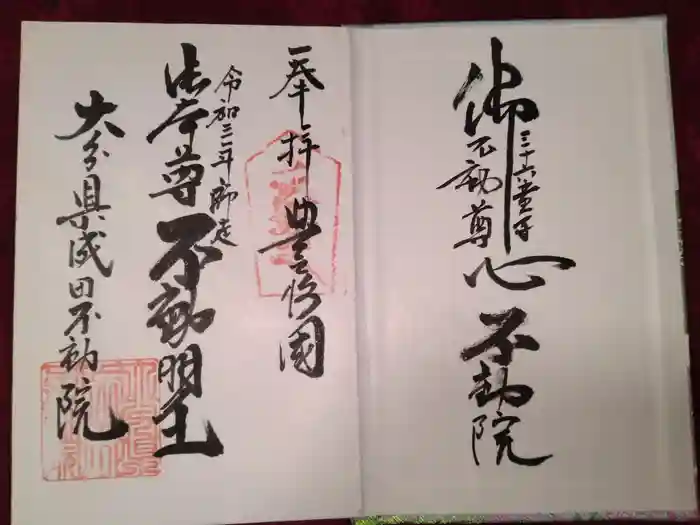 佛心
三十六童子
不動尊
不動院
奉拝 豊後國
令和三年師走
御本尊 不動明王
大分県成田不動院